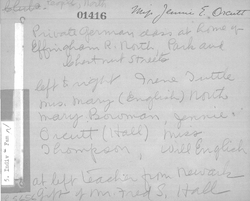 01416
Mrs. Jennie E. Orcutt
Private German class at home of
Effingham R. North. Park and
Chestnut Streets
left to right Irene Tuttle
Mrs. Mary (English) North
Mary Bowman, Jennie
Orcutt (Hall) Miss
Thompson, Will English
at left Teacher from Newark
Gift of Mr. Fred S. Hall